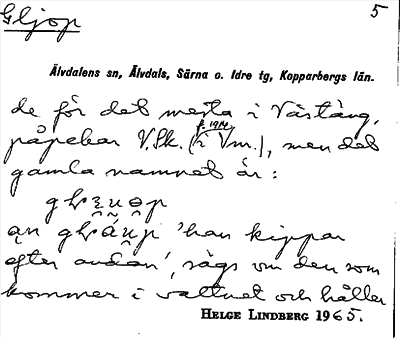 Gljop
5
Älvdalens sn, Älvdals, Särna o. Idre tg, Kopparbergs län.
de för det mesta i Västäng,
påpekar V.Sk. (i Vm.), men det
f. 1914
gamla namnet är:
'han kippar
efter andan', sägs om den som
kommer i vattnet och håller
HELGE LINDBERG 1965.